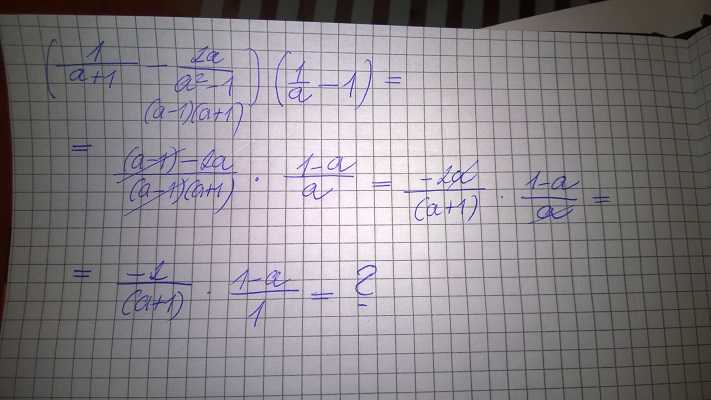 (1/(a+1) - 2a/(a²-1)) (1/a - 1) =
(a-1)(a+1)
= ((a-1)-2a)/((a-1)(a+1)) · (1-a)/a = -2a/(a+1) · (1-a)/a =
= -2/(a+1) · (1-a)/1 = ?